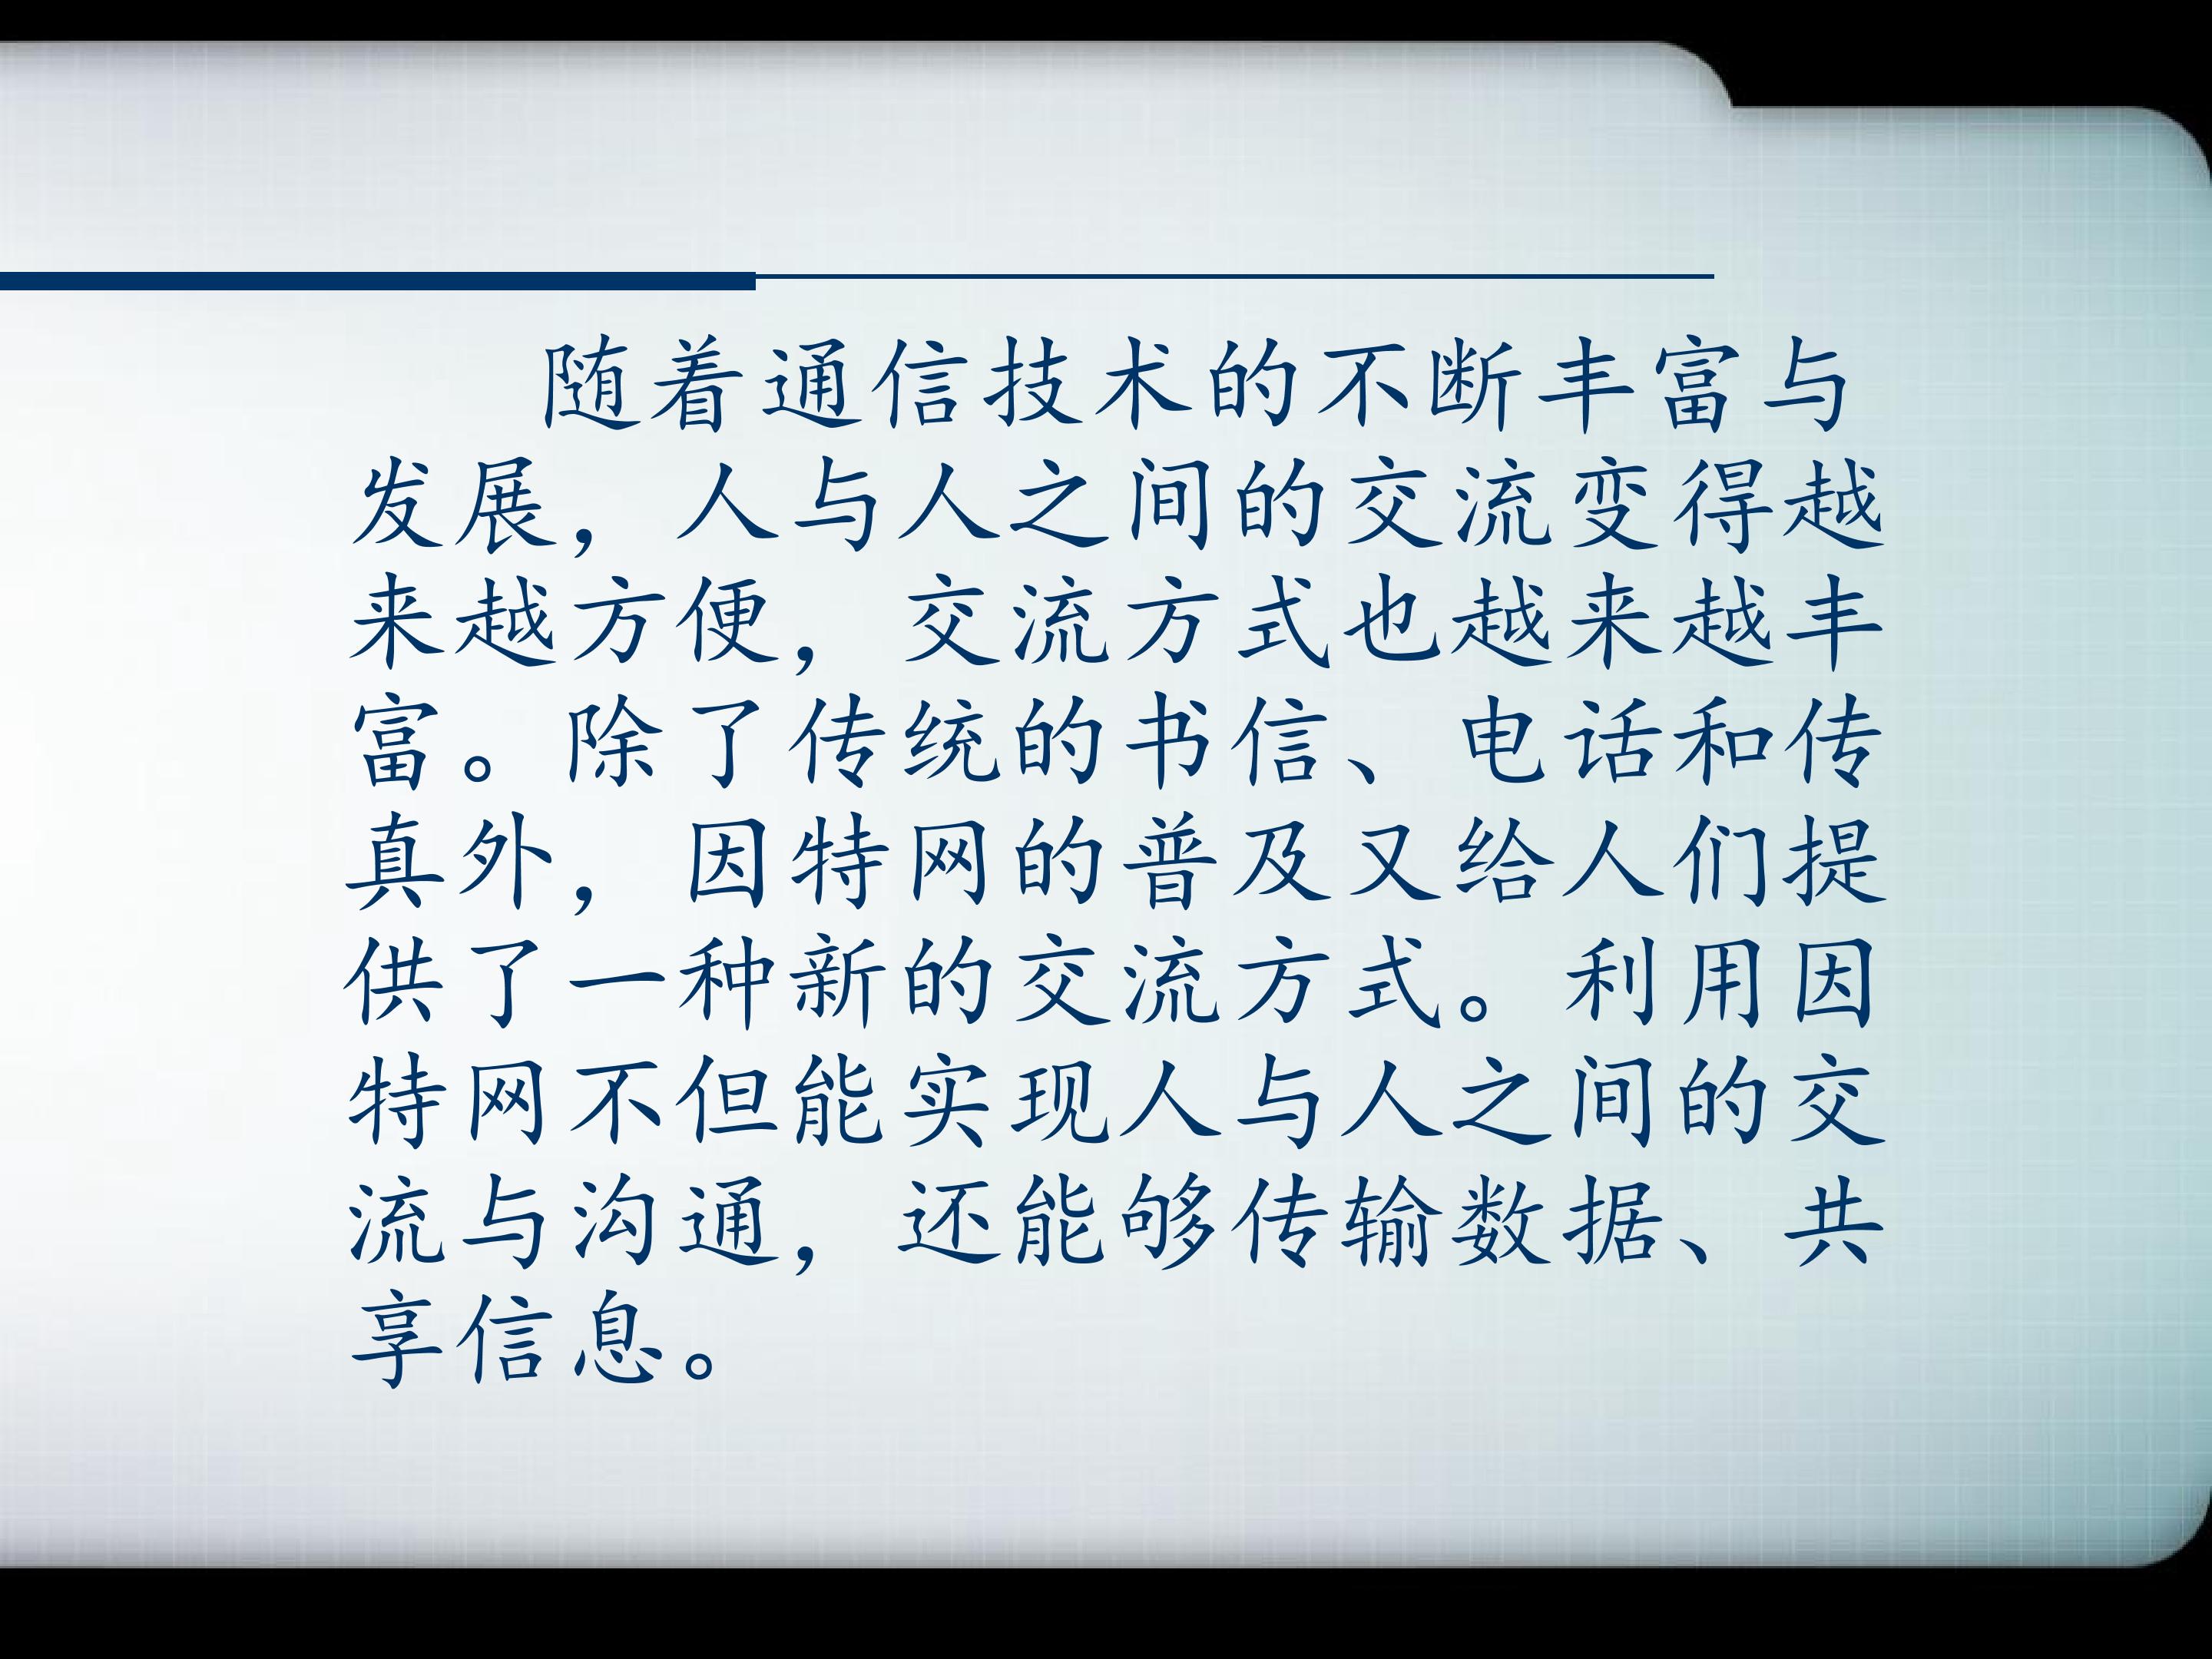 随着通信技术的不断丰富与
发展，人与人之间的交流变得越
来越方便，交流方式也越来越丰
富。除了传统的书信、电话和传
真外，因特网的普及又给人们提
供了一种新的交流方式。利用因
特网不但能实现人与人之间的交
流与沟通，还能够传输数据、共
享信息。